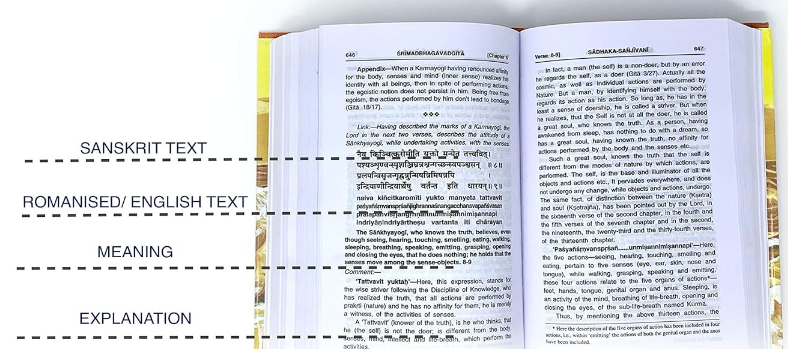 SANSKRIT TEXT
ROMANISED/ ENGLISH TEXT
MEANING
EXPLANATION
646 ŚRĪMADBHAGAVADGĪTĀ [Chapter 5
Appendix—When a Karmayogī having renounced affinity
for the body, senses and mind (inner sense) realizes his
identity with all beings, then in spite of performing actions,
the egoistic notion does not persist in him. Being free from
egoism, the actions performed by him don't lead to bondage
(Gītā 18/17).
Link:—Having described the marks of a Karmayogī, the
Lord in the next two verses, describes the attitude of a
Sāṅkhyayogī, while undertaking activities, with the senses.
नैव किञ्चित्करोमीति युक्तो मन्येत तत्त्ववित्।
पश्यञ्शृण्वन्स्पृशञ्जिघ्रन्नश्नन्गच्छन्स्वपञ्श्वसन्॥ ८॥
प्रलपन्विसृजन्गृह्णन्नुन्मिषन्निमिषन्नपि
इन्द्रियाणीन्द्रियार्थेषु वर्तन्त इति धारयन्॥ ९॥
naiva kiñcitkaromīti yukto manyeta tattvavit
paśyañśṛṇvanspṛśañjighrannaśnangacchansvapañśvasan
pralapanvisṛjangṛhṇannunmiṣannimiṣannapi
indriyāṇīndriyārtheṣu vartanta iti dhārayan
The Sāṅkhyayogī, who knows the truth, believes, even
though seeing, hearing, touching, smelling, eating, walking,
sleeping, breathing, speaking, emitting, grasping, opening
and closing the eyes, that he does nothing; he holds that the
senses move among the sense-objects. 8-9
Comment—
'Tattvavit yuktaḥ'—Here, this expression, stands for
the wise striver following the Discipline of Knowledge, who
has realized the truth, that all actions are performed by
prakṛti (nature) and he has no affinity for them, he is merely
a witness, of the activities of senses.
A 'Tattvavit' (knower of the truth), is he who thinks, that
he (the self) is not the doer; is different from the body,
senses, mind, intellect and life-breath, which perform the
activities.
Verse: 8-9] SĀDHAKA-SAÑJĪVANĪ 647
In fact, a man (the self) is a non-doer, but by an error
he regards the self, as a doer (Gītā 3/27). Actually all the
cosmic, as well as individual actions are performed by
Nature. But a man, by identifying himself with the body,
regards its action as his action. So long as, he has in the
least a sense of doership, he is called a striver. But when
he realizes, that the Self is not at all the doer, he is called
a great soul, who knows the truth. As a person, having
awakened from sleep, has nothing to do with a dream, so
has a great soul, having known the truth, no affinity for
actions performed by the body and the senses etc.
Such a great soul, knows that the self is
different from the modes of nature by which actions, are
performed. The self, is the base and illuminator of all the
objects and actions etc., It pervades everywhere, and does
not undergo any change, while objects and actions, undergo.
The same fact, of distinction between the nature (Kṣetra)
and soul (Kṣetrajña), has been pointed out by the Lord, in
the sixteenth verse of the second chapter, in the fourth and
the fifth verses of the seventh chapter and in the second,
the nineteenth, the twenty-third and the thirty-fourth verses,
of the thirteenth chapter.
'Paśyañśṛṇvanspṛśan.....unmiṣannimiṣannapi'—Here,
the five actions—seeing, hearing, touching, smelling and
eating, pertain to five senses (eye, ear, skin, nose and
tongue), while walking, grasping, speaking and emitting,
these four actions relate to the five organs of actions*—
feet, hands, tongue, genital organ and anus. Sleeping, is
an activity of the mind, breathing of life-breath, opening and
closing the eyes, of the sub-life-breath named Kūrma.
Thus, by mentioning the above thirteen actions, the
* Here the description of the five organs of action has been included in four
actions, i.e., within 'emitting' the actions of both the genital organ and the anus
have been included.